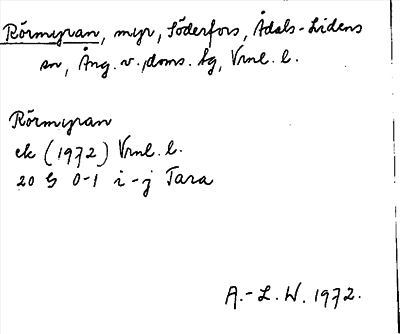 Rörmyran, myr, Söderfors, Ådals-Lidens
sn, Ång. v. doms. sg, Vrnl. l.
Rörmyran
ek (1972) Vrnl. l.
20 G 0-1 i-j Tara
A.-L. W. 1972.